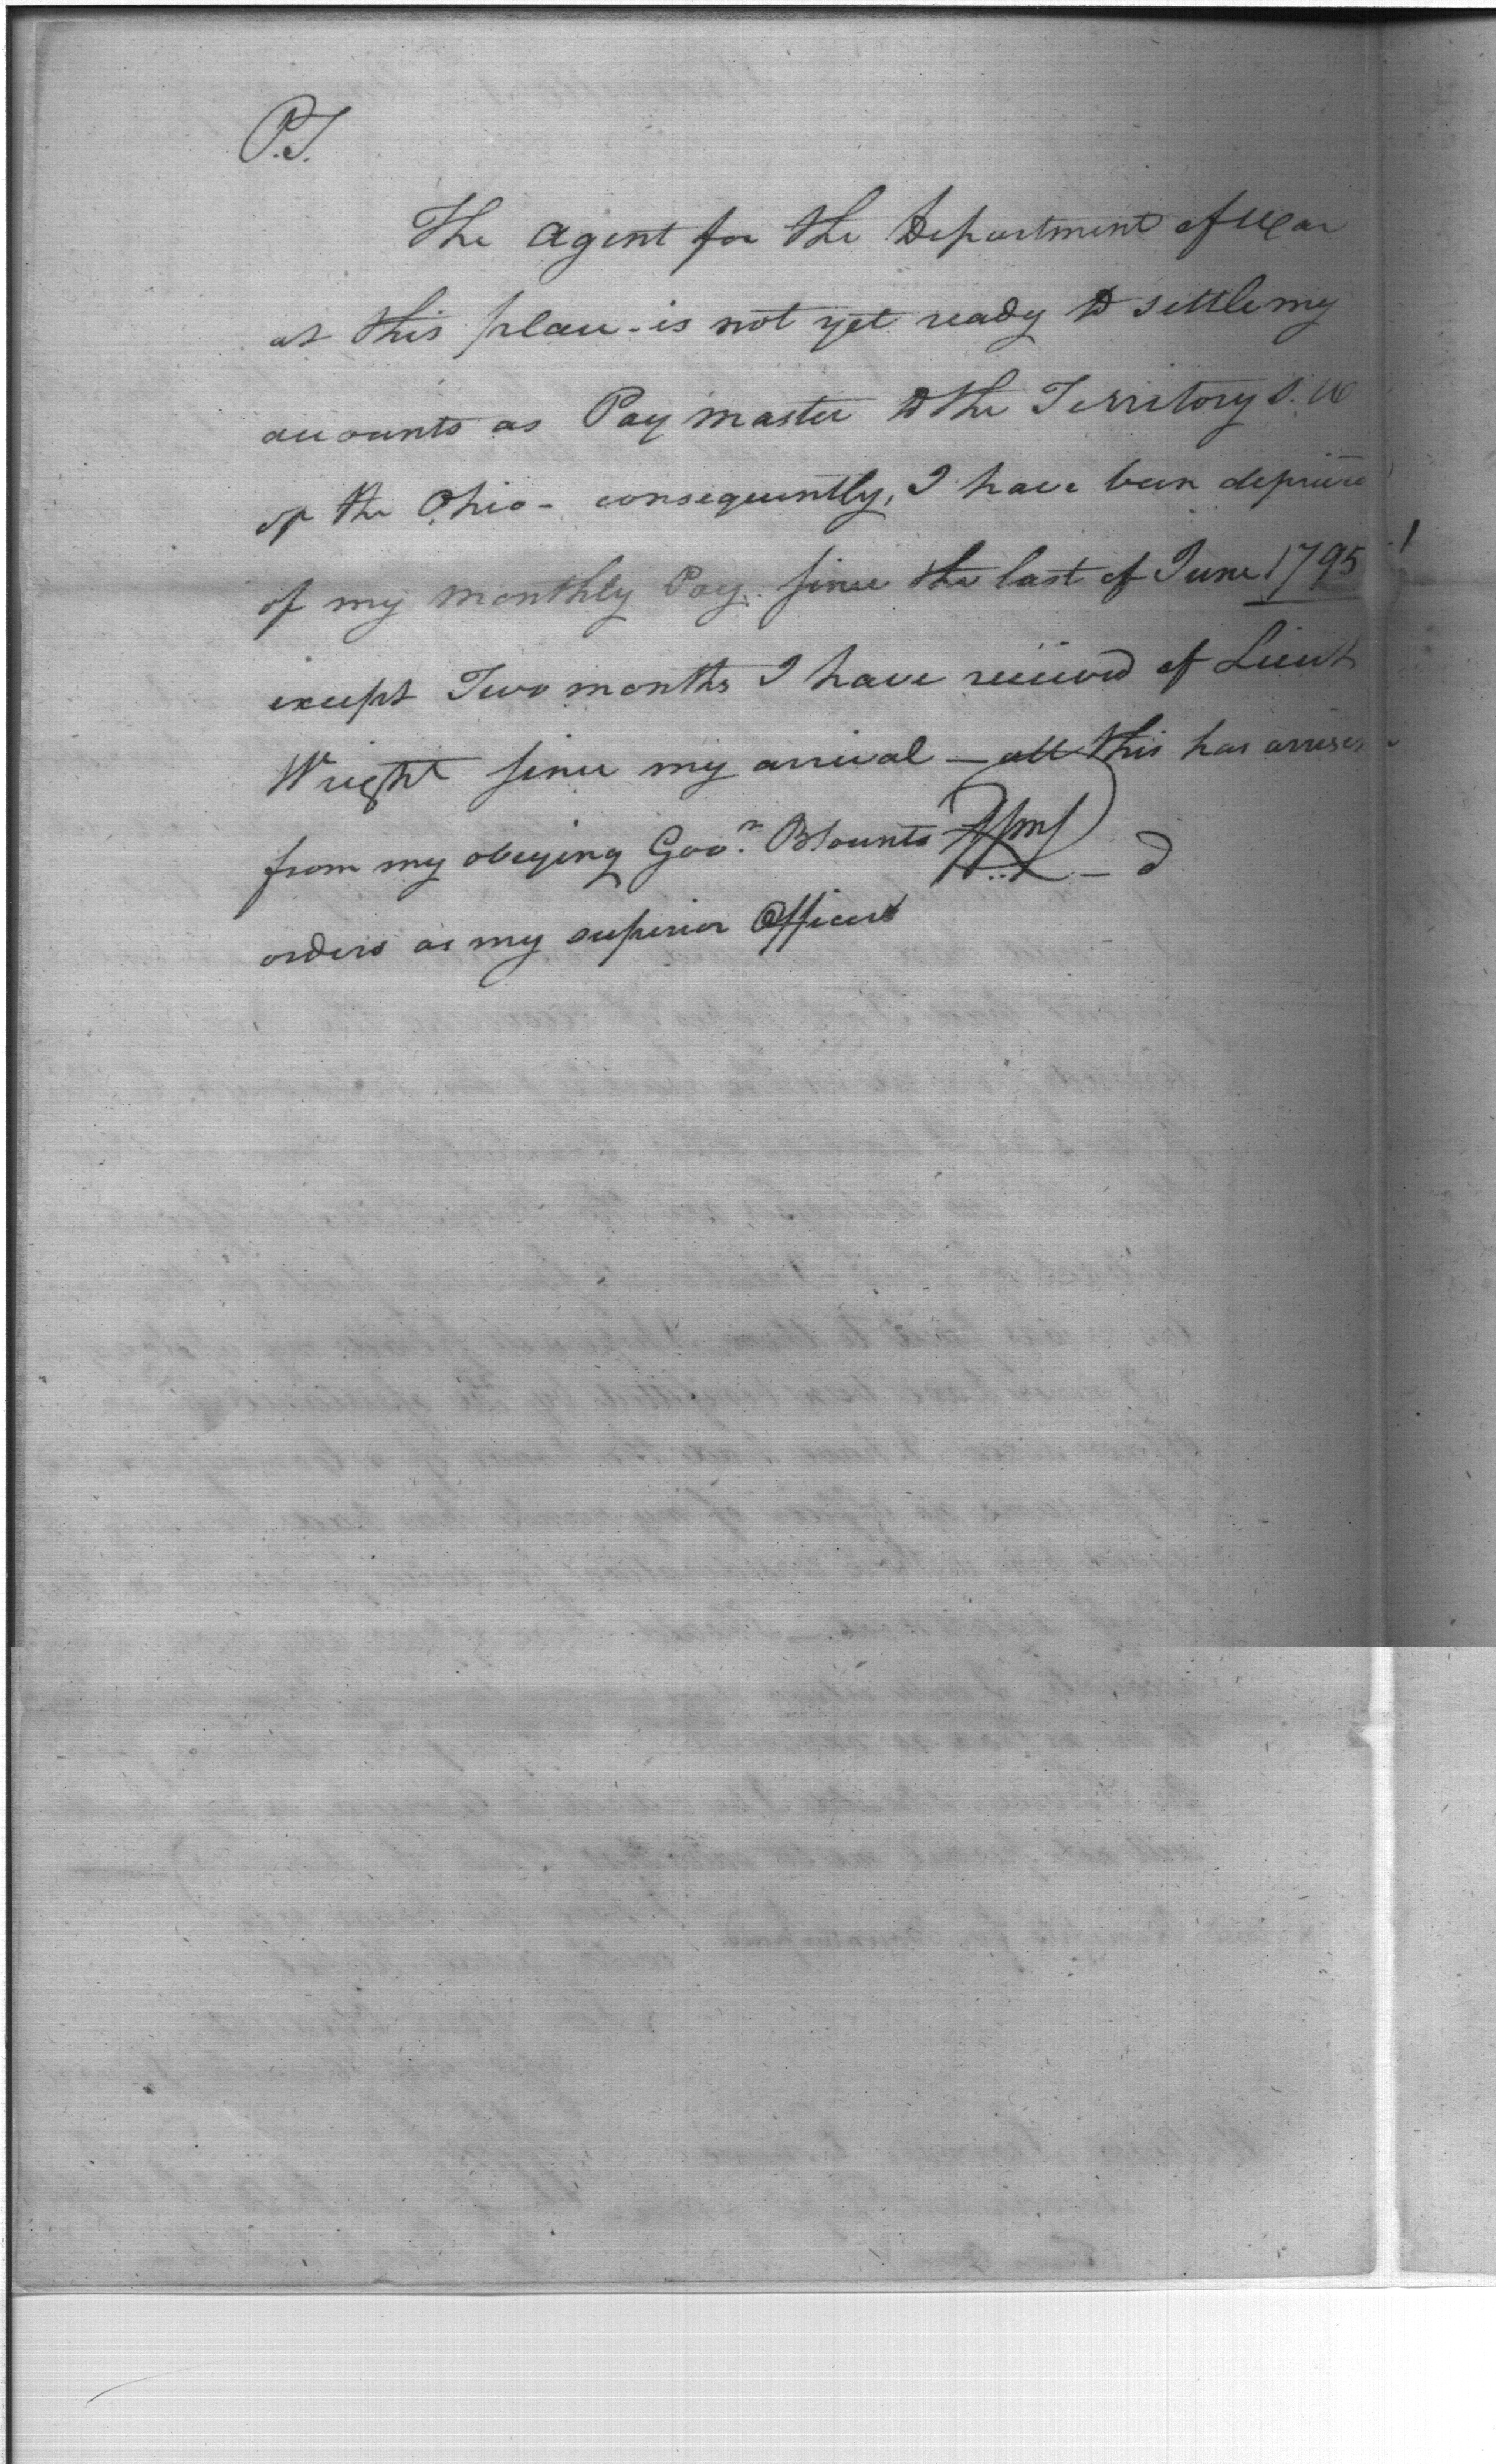 P.S.
The Agent for the Department of War
at this place - is not yet ready to settle my
accounts as Pay master to the Territory S. W
of the Ohio - consequently, I have been deprived
of my monthly Pay. since the last of June 1795
except Two months I have received of Lieut
Wright since my arrival - all this has arrisen
from my obeying Govr. Blounts
orders as my superior Officer